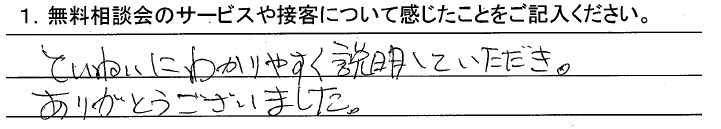 1. 無料相談会のサービスや接客について感じたことをご記入ください。
ていねいにわかりやすく説明していただき。
ありがとうございました。